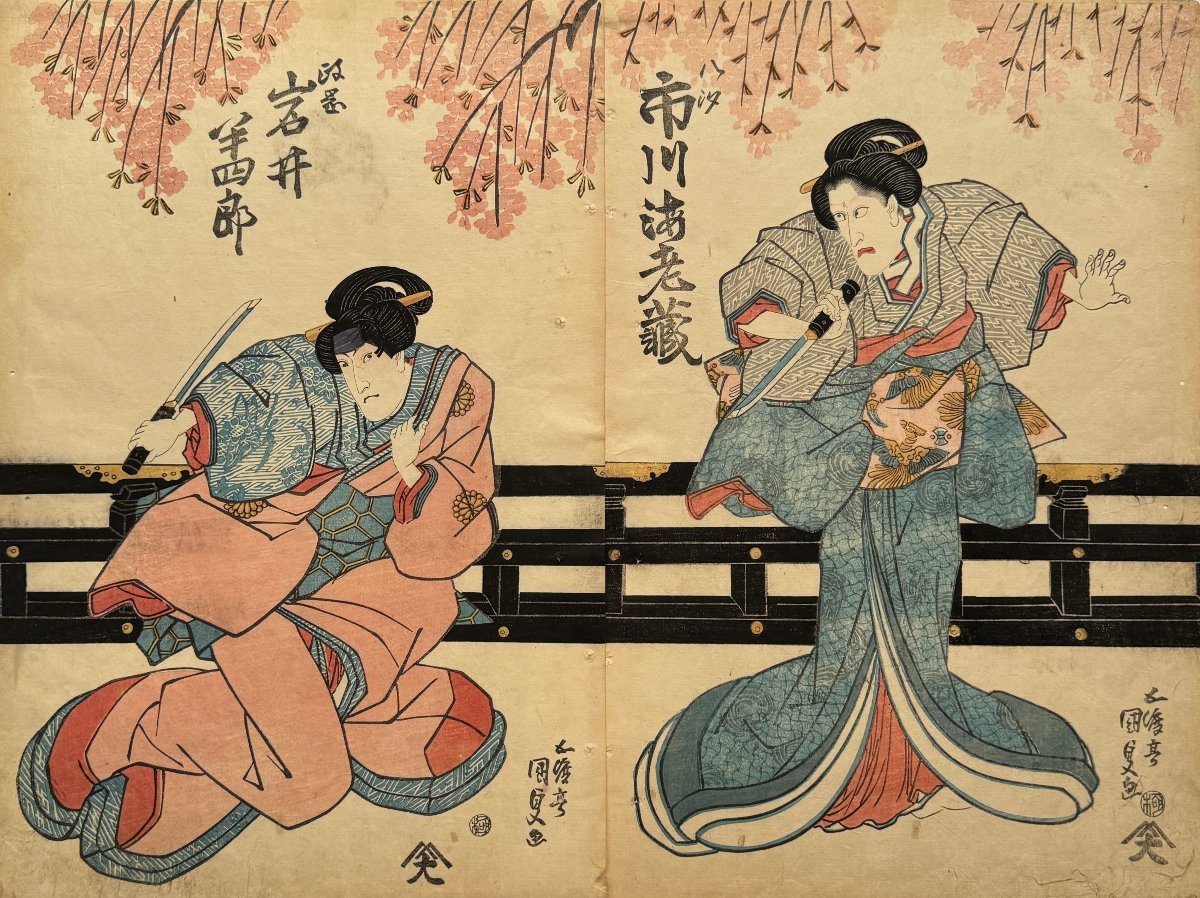 八汐
市川海老蔵
五渡亭
國貞画
極
政岡
岩井
半四郎
五渡亭
國貞画
極